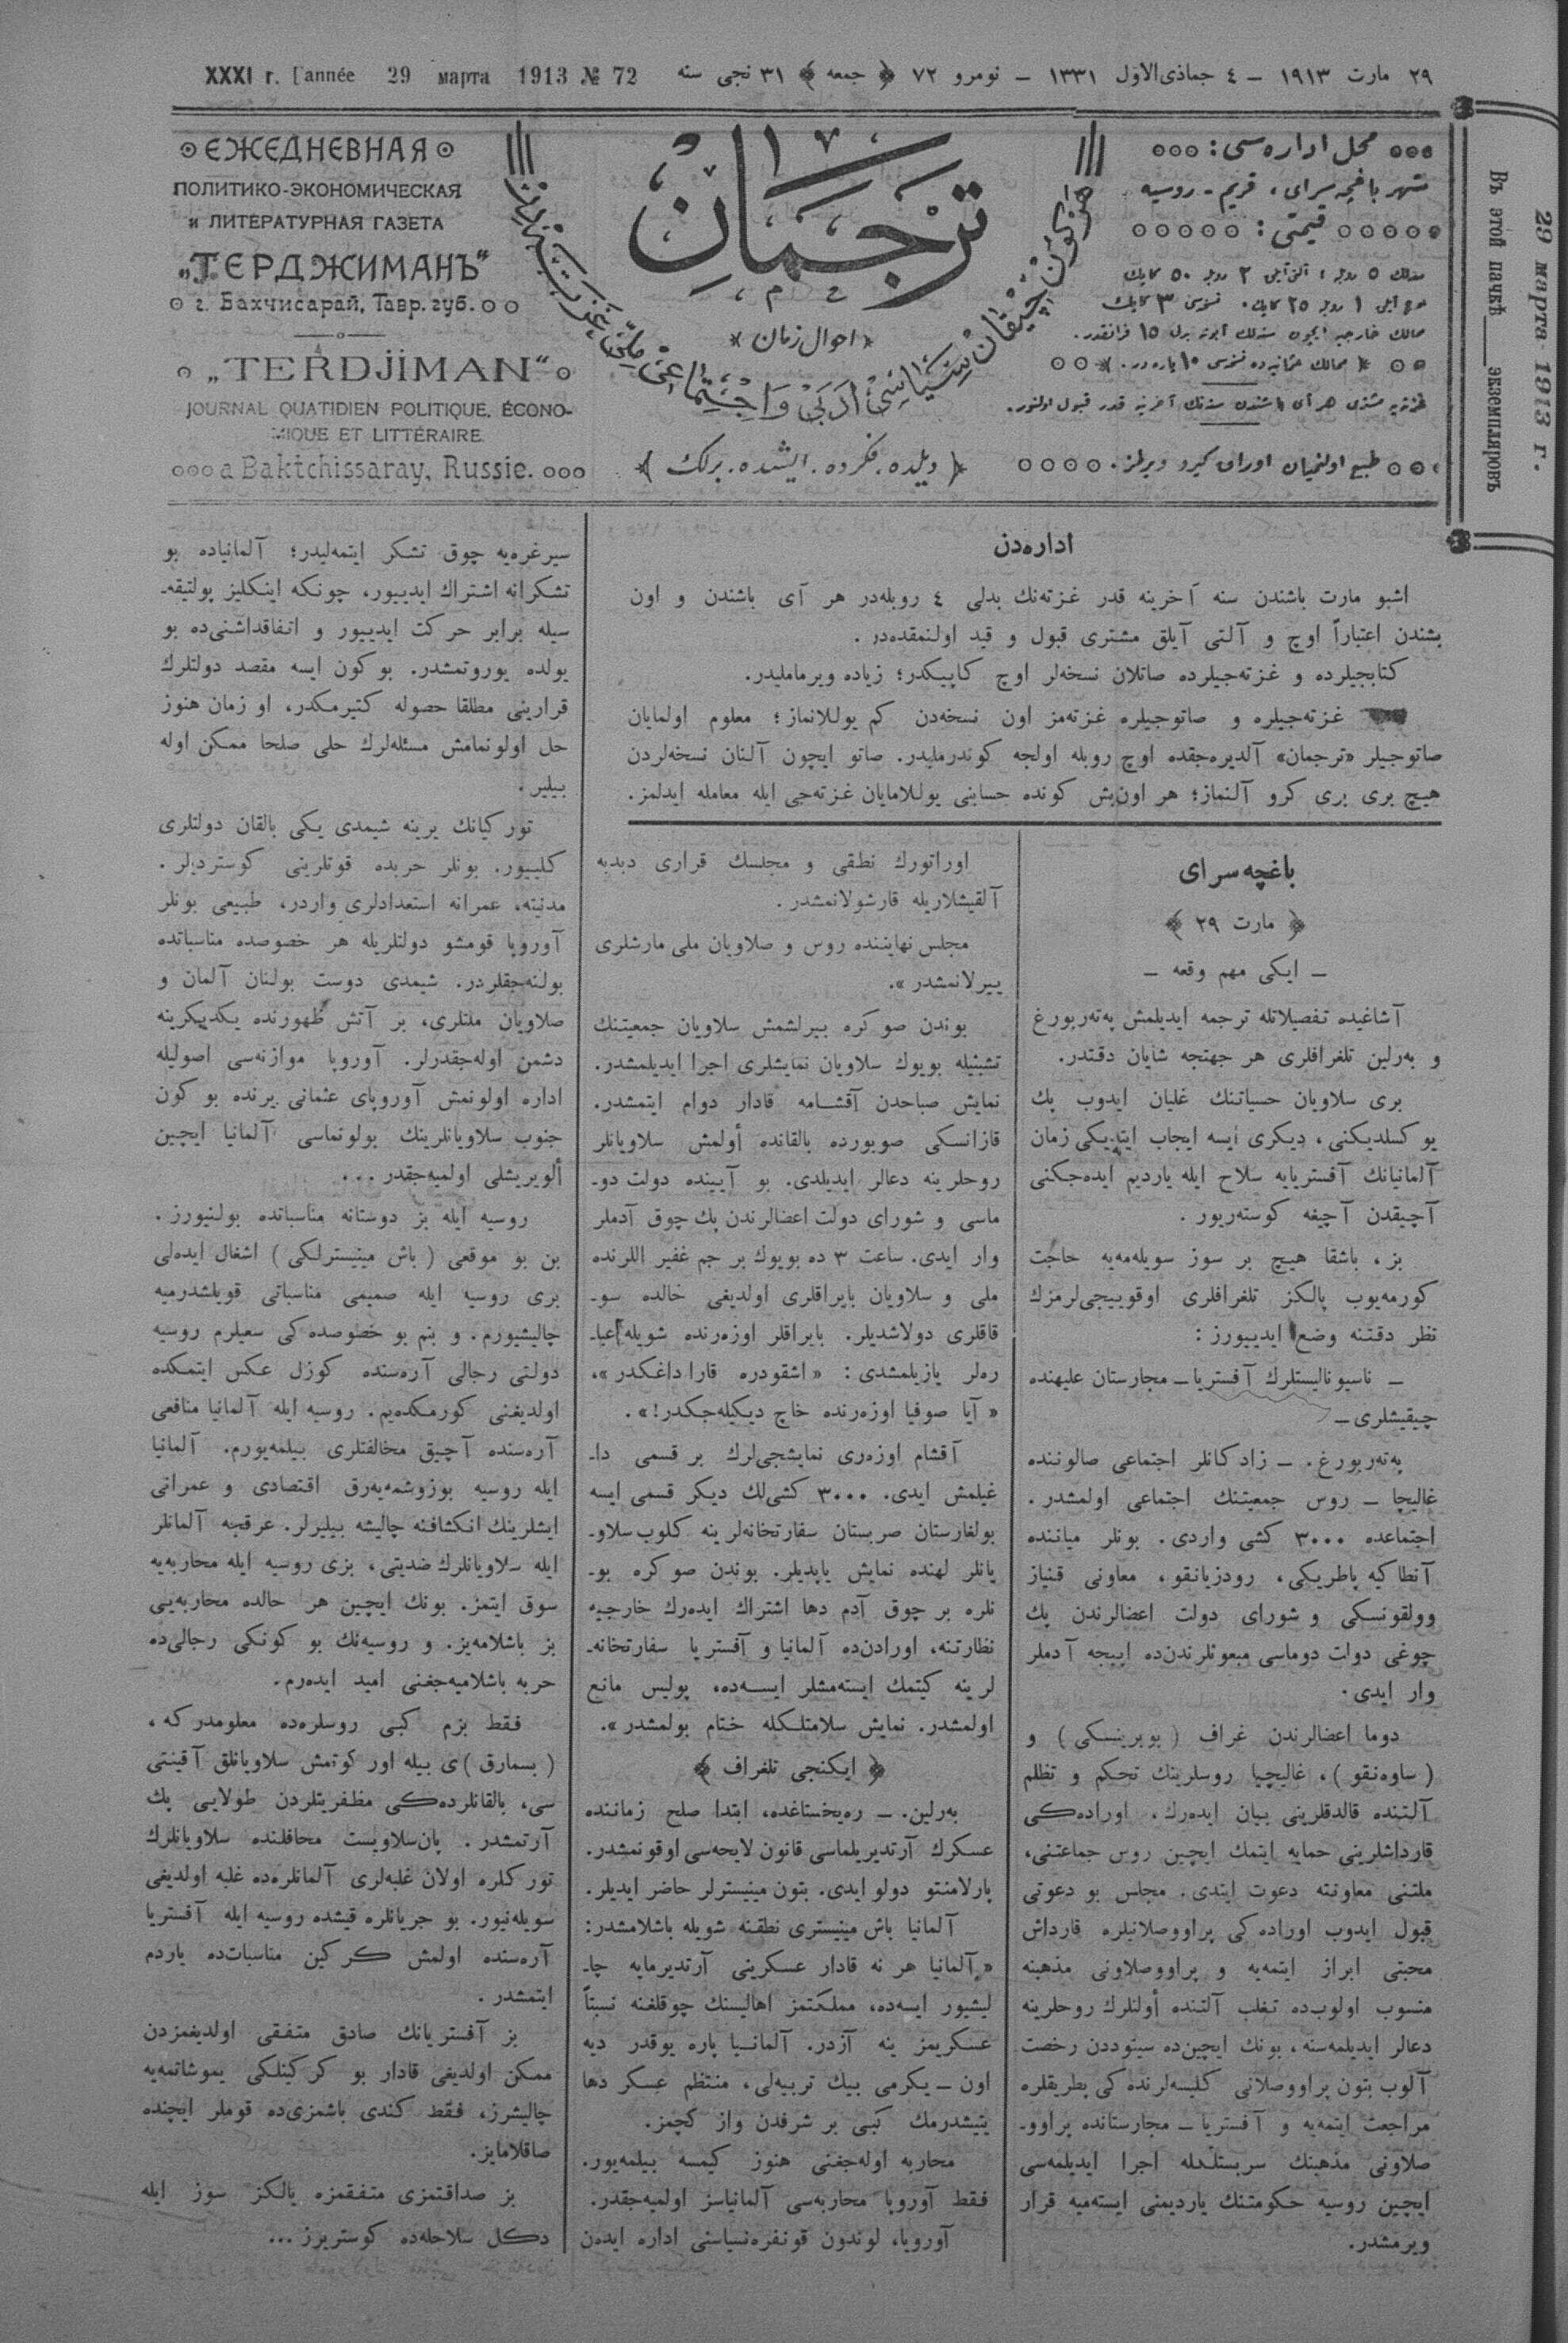 XXXI г. l'année 29 марта 1913 № 72
٢٩ مارت ١٩١٣ – ٤ جماذى‌الاول ١٣٣١ – نومرو ٧٢ ﴿ جمعه ﴾ ٣١ نجى سنه
ЕЖЕДНЕВНАЯ
ПОЛИТИКО-ЭКОНОМИЧЕСКАЯ
и ЛИТЕРАТУРНАЯ ГАЗЕТА
„ТЕРДЖИМАНЪ“
г. Бахчисарай, Тавр. губ.
„TERDJIMAN“
JOURNAL QUATIDIEN POLITIQUE, ÉCONO-
MIQUE ET LITTÉRAIRE
a Baktchissaray, Russie.
ترجمان
احوال زمان
هركون چيقان سياسى ادبى و اجتماعى ملى غزته‌در
﴿ ديلده. فكرده. ايشده. برلك ﴾
محل اداره‌سى:
شهر باغچه‌سراى، قريم - روسيه
قيمتى:
سنه‌لك ٥ روبله ؛ آلتى آيلى ٢ روبله ٥٠ كاپك
اوچ آيلى ١ روبله ٢٥ كاپك. نسخه‌سى ٣ كاپك
ممالك خارجيه ايچون سنه‌لك آبونه بدلى ١٥ فرانقدر.
ممالك عثمانيه‌ده نسخه‌سى ١٠ پاره‌در.
غزته‌يه مشترى هر آى باشندن سنه‌نك آخرينه قدر قبول اولنور.
طبع اولنميان اوراق كيرو ويرلمز.
Въ этой пачкѣ ____ экземпляровъ
29 марта 1913 г.
اداره‌دن
اشبو مارت باشندن سنه آخرينه قدر غزته‌نك بدلى ٤ روبله‌در هر آى باشندن و اون
بشندن اعتباراً اوچ و آلتى آيلق مشترى قبول و قيد اولنمقده‌در .
كتابجيلرده و غزته‌جيلرده صاتلان نسخه‌لر اوچ كاپيكدر؛ زياده ويرماملیدر.
غزته‌جيلره و صاتوجيلره غزته‌مز اون نسخه‌دن كم يوللانماز؛ معلوم اولمايان
صاتوجيلر «ترجمان» آلديره‌جقده اوچ روبله اولجه كوندرمليدر. صاتو ايچون آلنان نسخه‌لردن
هيچ برى برى كرو آلنماز؛ هر اون‌بش كونده حسابنى يوللامايان غزته‌جى ايله معامله ايدلمز.
باغچه سراى
﴿ مارت ٢٩ ﴾
– ايكى مهم وقعه –
آشاغيده تفصيلاتله ترجمه ايديلمش پەتەربورغ
و بەرلين تلغرافلرى هر جهتجه شايان دقتدر.
برى سلاويان حسياتنك غليان ايدوب پك
يوكسلديكنى، ديكرى ايسه ايجاب ايتديكى زمان
آلمانيانك آفستريايه سلاح ايله يارديم ايده‌جكنى
آچيقدن آچيغه كوستەريور .
بز، باشقا هيچ بر سوز سويله‌مه‌يه حاجت
كورمه‌يوب يالكز تلغرافلرى اوقوييجى‌لرمزك
نظر دقتنه وضع ايدييورز :
– ناسيوناليستلرك آفستريا – مجارستان عليهنده
چيقيشلرى –
پەتەربورغ. – زادكانلر اجتماعى صالوننده
غاليچا – روس جمعيتنك اجتماعى اولمشدر.
اجتماعده ٣٠٠٠ كشى واردى. بونلر مياننده
آنطاكيه پاطريكى، رودزيانقو، معاونى قنياز
وولقونسكى و شوراى دولت اعضالرندن پك
چوغى دولت دوماسى مبعوثلرندن‌ده اييجه آدملر
وار ايدى.
دوما اعضالرندن غراف ( بوبرينسكى ) و
( ساوەنقو )، غاليچيا روسلرينك تحكم و تظلم
آلتنده قالدقلرينى بيان ايده‌رك، اوراده‌كى
قارداشلرينى حمايه ايتمك ايچين روس جماعتنى،
ملتنى معاونته دعوت ايتدى. مجلس بو دعوتى
قبول ايدوب اوراده‌كى پراووصلاونلره قارداش
محبتى ابراز ايتمه‌يه و پراووصلاونى مذهبنه
منسوب اولوب‌ده تغلب آلتنده أولنلرك روحلرينه
دعالر ايديلمه‌سنه، بونك ايچين‌ده سينوددن رخصت
آلوب بتون پراووصلاونى كليسه‌لرنده‌كى پطريقلره
مراجعت ايتمه‌يه و آفستريا – مجارستانده پراوو-
صلاونى مذهبنك سربستلكله اجرا ايديلمه‌سى
ايچين روسيه حكومتنك يارديمنى ايسته‌ميه قرار
ويرمشدر.
اوراتورك نطقى و مجلسك قرارى دبدبه
آلقيشلاريله قارشولانمشدر.
مجلس نهايتنده روس و صلاويان ملى مارشلرى
ييرلانمشدر».
بوندن صوكره بيرلشمش سلاويان جمعيتنك
تشبثيله بويوك سلاويان نمايشلرى اجرا ايديلمشدر.
نمايش صباحدن آقشامه قادار دوام ايتمشدر.
قازانسكى صوبورده بالقانده أولمش سلاويانلر
روحلرينه دعالر ايديلدى. بو آيينده دولت دو-
ماسى و شوراى دولت اعضالرندن پك چوق آدملر
وار ايدى. ساعت ٣ ده بويوك بر جم غفير اللرنده
ملى و سلاويان بايراقلرى اولديغى حالده سو-
قاقلرى دولاشديلر. بايراقلر اوزەرنده شويله عبا-
ره‌لر يازيلمشدى: «اشقودره قارا داغكدر»،
« آيا صوفيا اوزەرنده خاچ ديكيله‌جكدر!».
آقشام اوزەرى نمايشجى‌لرك بر قسمى دا-
غيلمش ايدى. ٣٠٠٠ كشى‌لك ديكر قسمى ايسه
بولغارستان صربستان سفارتخانه‌لرينه كلوب سلاو-
يانلر لهنده نمايش ياپديلر. بوندن صوكره بو-
نلره بر چوق آدم دها اشتراك ايده‌رك خارجيه
نظارتنه، اورادن‌ده آلمانيا و آفستريا سفارتخانه-
لرينه كيتمك ايسته‌مشلر ايسه‌ده، پوليس مانع
اولمشدر. نمايش سلامتلكله ختام بولمشدر».
﴿ ايكنجى تلغراف ﴾
بەرلين. – رەيخستاغده، ابتدا صلح زماننده
عسكرك آرتديريلماسى قانون لايحه‌سى اوقونمشدر.
پارلامنتو دولو ايدى. بتون مينيسترلر حاضر ايديلر.
آلمانيا باش مينيسترى نطقنه شويله باشلامشدر:
« آلمانيا هر نه قادار عسكرينى آرتديرمايه چا-
ليشيور ايسه‌ده، مملكتمز اهاليسنك چوقلغنه نسبتاً
عسكريمز ينه آزدر. آلمانيا پاره يوقدر ديه
اون – يكرمى بيك تربيه‌لى، منتظم عسكر دها
يتيشدرمك كبى بر شرفدن واز كچمز.
محاربه اوله‌جغنى هنوز كيمسه بيلمه‌يور.
فقط آوروپا محاربه‌سى آلمانياسز اولميه‌جقدر.
آوروپا، لوندون قونفره‌نسياسنى اداره ايدەن
سيرغره‌يه چوق تشكر ايتمه‌ليدر؛ آلمانياده بو
تشكرانه اشتراك ايدييور، چونكه اينكليز پولتيقه-
سيله برابر حركت ايدييور و اتفاقداشنى‌ده بو
يولده يوروتمشدر. بوكون ايسه مقصد دولتلرك
قرارينى مطلقا حصوله كتيرمكدر، او زمان هنوز
حل اولونمامش مسئله‌لرك حلى صلحا ممكن اوله
بيلير.
توركيانك يرينه شيمدى يكى بالقان دولتلرى
كلييور. بونلر حربده قوتلرينى كوسترديلر.
مدنيته، عمرانه استعدادلرى واردر، طبيعى بونلر
آوروپا قومشو دولتلريله هر خصوصده مناسباتده
بولنه‌جقلردر. شيمدى دوست بولنان آلمان و
صلاويان ملتلرى، بر آتش ظهورنده يكديكرينه
دشمن اوله‌جقدرلر. آوروپا موازنه‌سى اصوليله
اداره اولونمش آوروپاى عثمانى يرنده بو كون
جنوب سلاويانلرينك بولونماسى آلمانيا ايچين
ألويريشلى اولميه‌جقدر...
روسيه ايله بز دوستانه مناسباتده بولنيورز.
بن بو موقعى ( باش مينيسترلكى ) اشغال ايده‌لى
برى روسيه ايله صميمى مناسباتى قويلشدرميه
چاليشيورم. و بنم بو خصوصده‌كى سعيلرم روسيه
دولتى رجالى آره‌سنده كوزل عكس ايتمكده
اولديغنى كورمكده‌يم. روسيه ايله آلمانيا منافعى
آره‌سنده آچيق مخالفتلرى بيلمه‌يورم. آلمانيا
ايله روسيه بوزوشمه‌يه‌رق اقتصادى و عمرانى
ايشلرينك انكشافنه چاليشه بيليرلر. عرقچه آلمانلر
ايله سلاويانلرك ضديتى، بزى روسيه ايله محاربه‌يه
سوق ايتمز. بونك ايچين هر حالده محاربه‌يى
بز باشلامه‌يز. و روسيه‌نك بو كونكى رجالى‌ده
حربه باشلاميه‌جغنى اميد ايده‌رم.
فقط بزم كبى روسلره‌ده معلومدركه،
( بسمارق )ى بيله اوركوتمش سلاويانلق آقينتى
سى، بالقانلرده‌كى مظفريتلردن طولايى پك
آرتمشدر. پان‌سلاويست محافلنده سلاويانلرك
توركلره اولان غلبه‌لرى آلمانلره‌ده غلبه اولديغى
سويله‌نيور. بو جريانلره قيشده روسيه ايله آفستريا
آره‌سنده اولمش كركين مناسبات‌ده ياردم
ايتمشدر.
بز آفستريانك صادق متفقى اولديغمزدن
ممكن اولديغى قادار بو كركينلكى يموشاتمه‌يه
چاليشرز، فقط كندى باشمزى‌ده قوملر ايچنده
صاقلامايز.
بز صداقتمزى متفقمزه يالكز سوز ايله
دكل سلاحله‌ده كوستريرز...